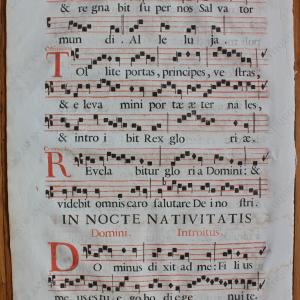 & re gna bit su per nos Sal va tor
mun di. Al le lu ja.
TOl li te portas, principes, ve stras,
& e leva mini por tæ æ ter na les,
& intro i bit Rex glo ri æ.
REvela bitur glo ri a Domini: &
videbit omnis caro salutare De i no stri.
IN NOCTE NATIVITATIS
Domini. Introitus.
DOminus di xit ad me: Fi li us
me us es tu, e go ho di e ge nui te.